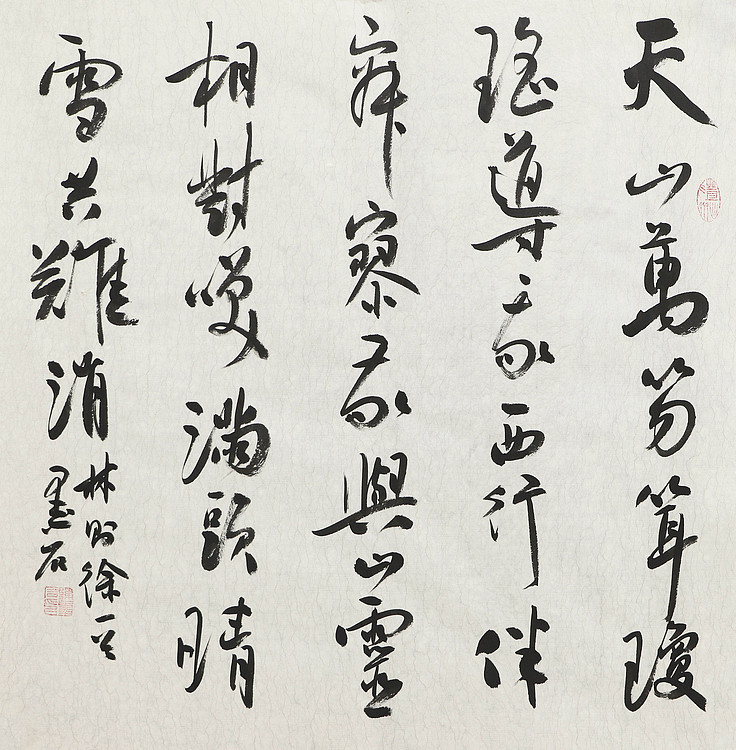 天山萬笏聳瓊
瑤導我西行伴
寂寥我與山靈
相對笑滿頭晴
雪共難消
林則徐一首
墨石